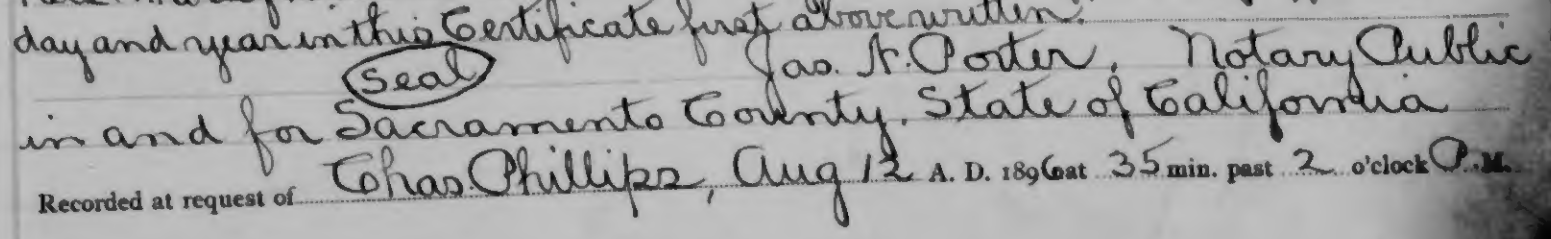 day and year in this Certificate first above written.
Seal Jas. H. Porter, Notary Public
in and for Sacramento County, State of California
Recorded at request of Chas. Phillips, Aug 12 A. D. 1896 at 35 min. past 2 o'clock P. M.